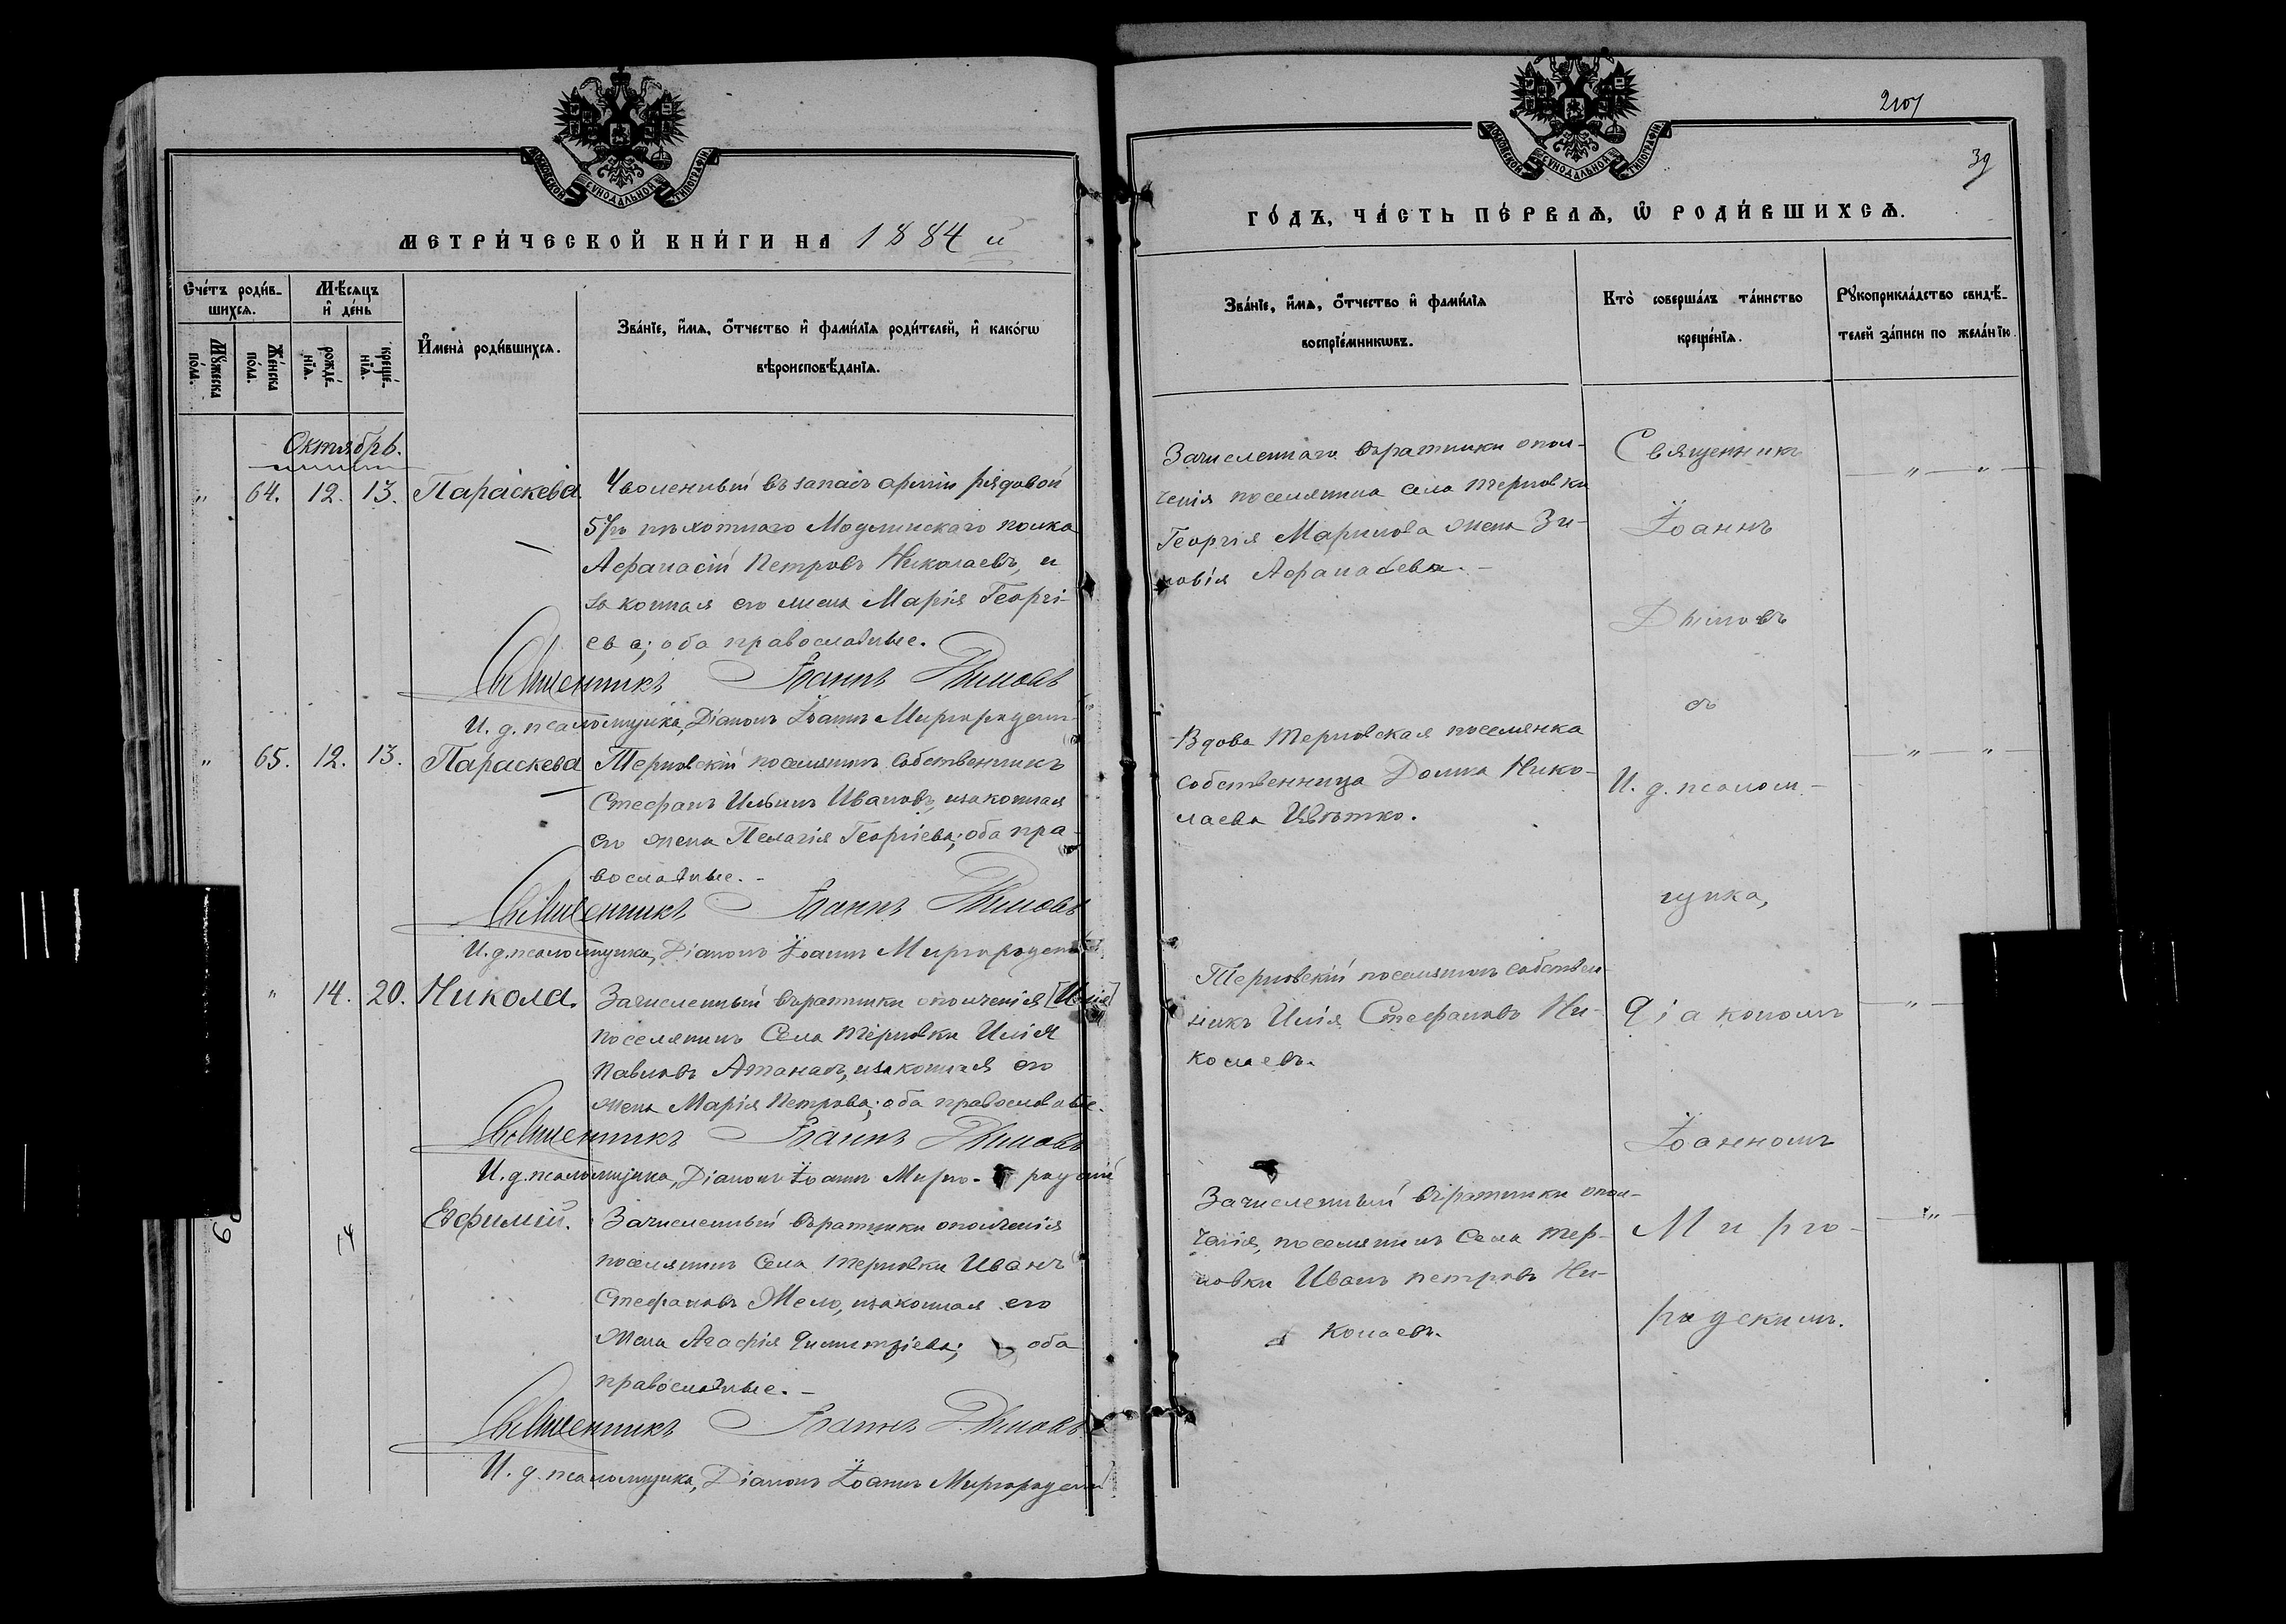 МОСКОВСКОЙ СѴНОДАЛЬНОЙ ТИПОГРАФІИ.
МЕТРИ́ЧЕСКОЙ КНИ́ГИ НА 1884 й
Сче́тъ роди́в-
шихсѧ.
Мѣ́сѧцъ
и҆ де́нь
Мꙋ́жеска
по́ла.
Же́нска
по́ла.
рожде́-
нїѧ.
креще́-
нїѧ.
И҆мена̀ роди́вшихсѧ.
Зва́нїе, и҆́мѧ, ѻ҆́тчество и҆ фами́лїѧ роди́телей, и҆ како́гѡ
вѣроисповѣ́данїѧ.
Октябрь.
" 64. 12. 13. Параскева
Уволенный въ запасъ арміи рядовой
57го пѣхотнаго Модлинскаго полка
Афанасій Петровъ Николаевъ, и
законная его жена Марія Георгі-
ева; оба православные.
Священникъ Іоаннъ Дымовъ
И. д. псаломщика, Діаконъ Іоаннъ Миргородскій
" 65. 12. 13. Параскева
Терновскій поселянинъ собственникъ
Стефанъ Ильинъ Ивановъ, изаконная
его жена Пелагія Георгіева; оба пра-
вославные. -
Священникъ Іоаннъ Дымовъ
И. д. псаломщика, Діаконъ Іоаннъ Миргородскій
" 14. 20. Никола.
Зачисленный въратники ополченія [Илія]
поселянинъ Села Терновки Илія
Павловъ Атанасъ, изаконная его
жена Марія Петрова; оба православные.
Священникъ Іоаннъ Дымовъ
И. д. псаломщика, Діаконъ Іоаннъ Мирго- родскій
14
Евфимій.
Зачисленный въратники ополченія
поселянинъ Села Терновки Иванъ
Стефановъ Желю, изаконная его
жена Агафія Димитріева; оба
православные. -
Священникъ Іоаннъ Дымовъ
И. д. псаломщика, Діаконъ Іоаннъ Миргородскій
МОСКОВСКОЙ СѴНОДАЛЬНОЙ ТИПОГРАФІИ.
39
ГО́ДЪ, ЧА́СТЬ ПЕ́РВАѦ, Ѡ҆ РОДИ́ВШИХСѦ.
Зва́нїе, и҆́мѧ, ѻ҆́тчество и҆ фами́лїѧ
воспрїе́мникѡвъ.
Кто̀ соверша́лъ та́инство
креще́нїѧ.
Рꙋкоприкла́дство свидѣ́-
телей за́писи по жела́нїю.
Зачисленнаго въратники опол-
ченія поселянина села Терновки
Георгія Маринова жена Зи-
новія Афанасьева. -
Вдова Терновская поселянка
собственница Домка Нико-
лаева Цвѣтко.
Терновскій поселянинъ собствен-
никъ Илія Стефановъ Ни-
колаевъ.
Зачисленный въратники опол-
ченія, поселянинъ Села Тер-
новки Иванъ Петровъ Ни-
колаевъ.
Священникъ
Іоаннъ
Дымовъ
съ
И. д. псалом-
щика,
Діакономъ
Іоанномъ
Мирго-
родскимъ.